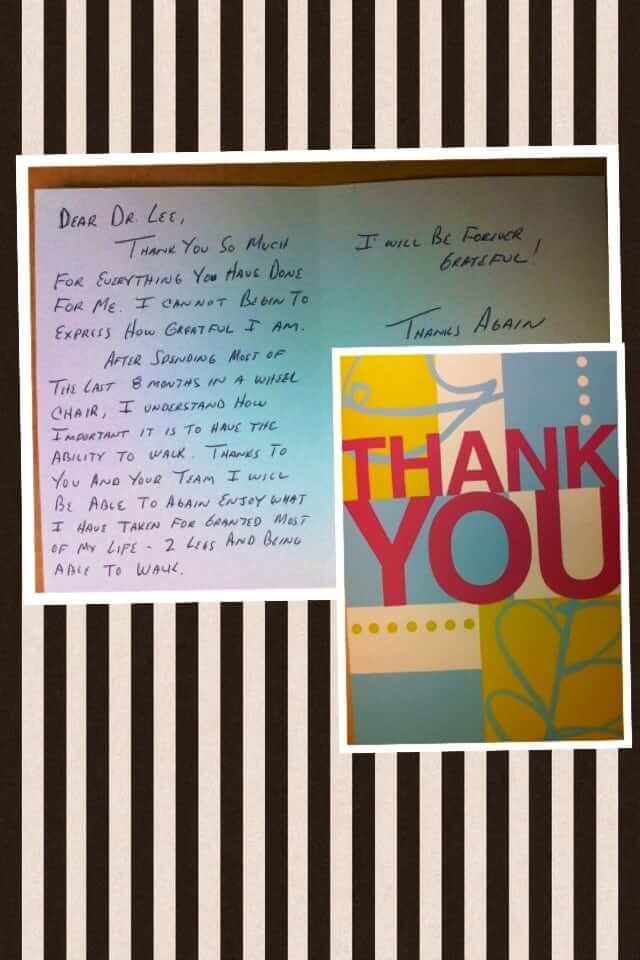 DEAR DR. LEE,
THANK YOU SO MUCH
FOR EVERYTHING YOU HAVE DONE
FOR ME. I CANNOT BEGIN TO
EXPRESS HOW GREATFUL I AM.
AFTER SPENDING MOST OF
THE LAST 8 MONTHS IN A WHEEL
CHAIR, I UNDERSTAND HOW
IMPORTANT IT IS TO HAVE THE
ABILITY TO WALK. THANKS TO
YOU AND YOUR TEAM I WILL
BE ABLE TO AGAIN ENJOY WHAT
I HAVE TAKEN FOR GRANTED MOST
OF MY LIFE - 2 LEGS AND BEING
ABLE TO WALK.
I WILL BE FOREVER
GRATEFUL!
THANKS AGAIN
THANK
YOU